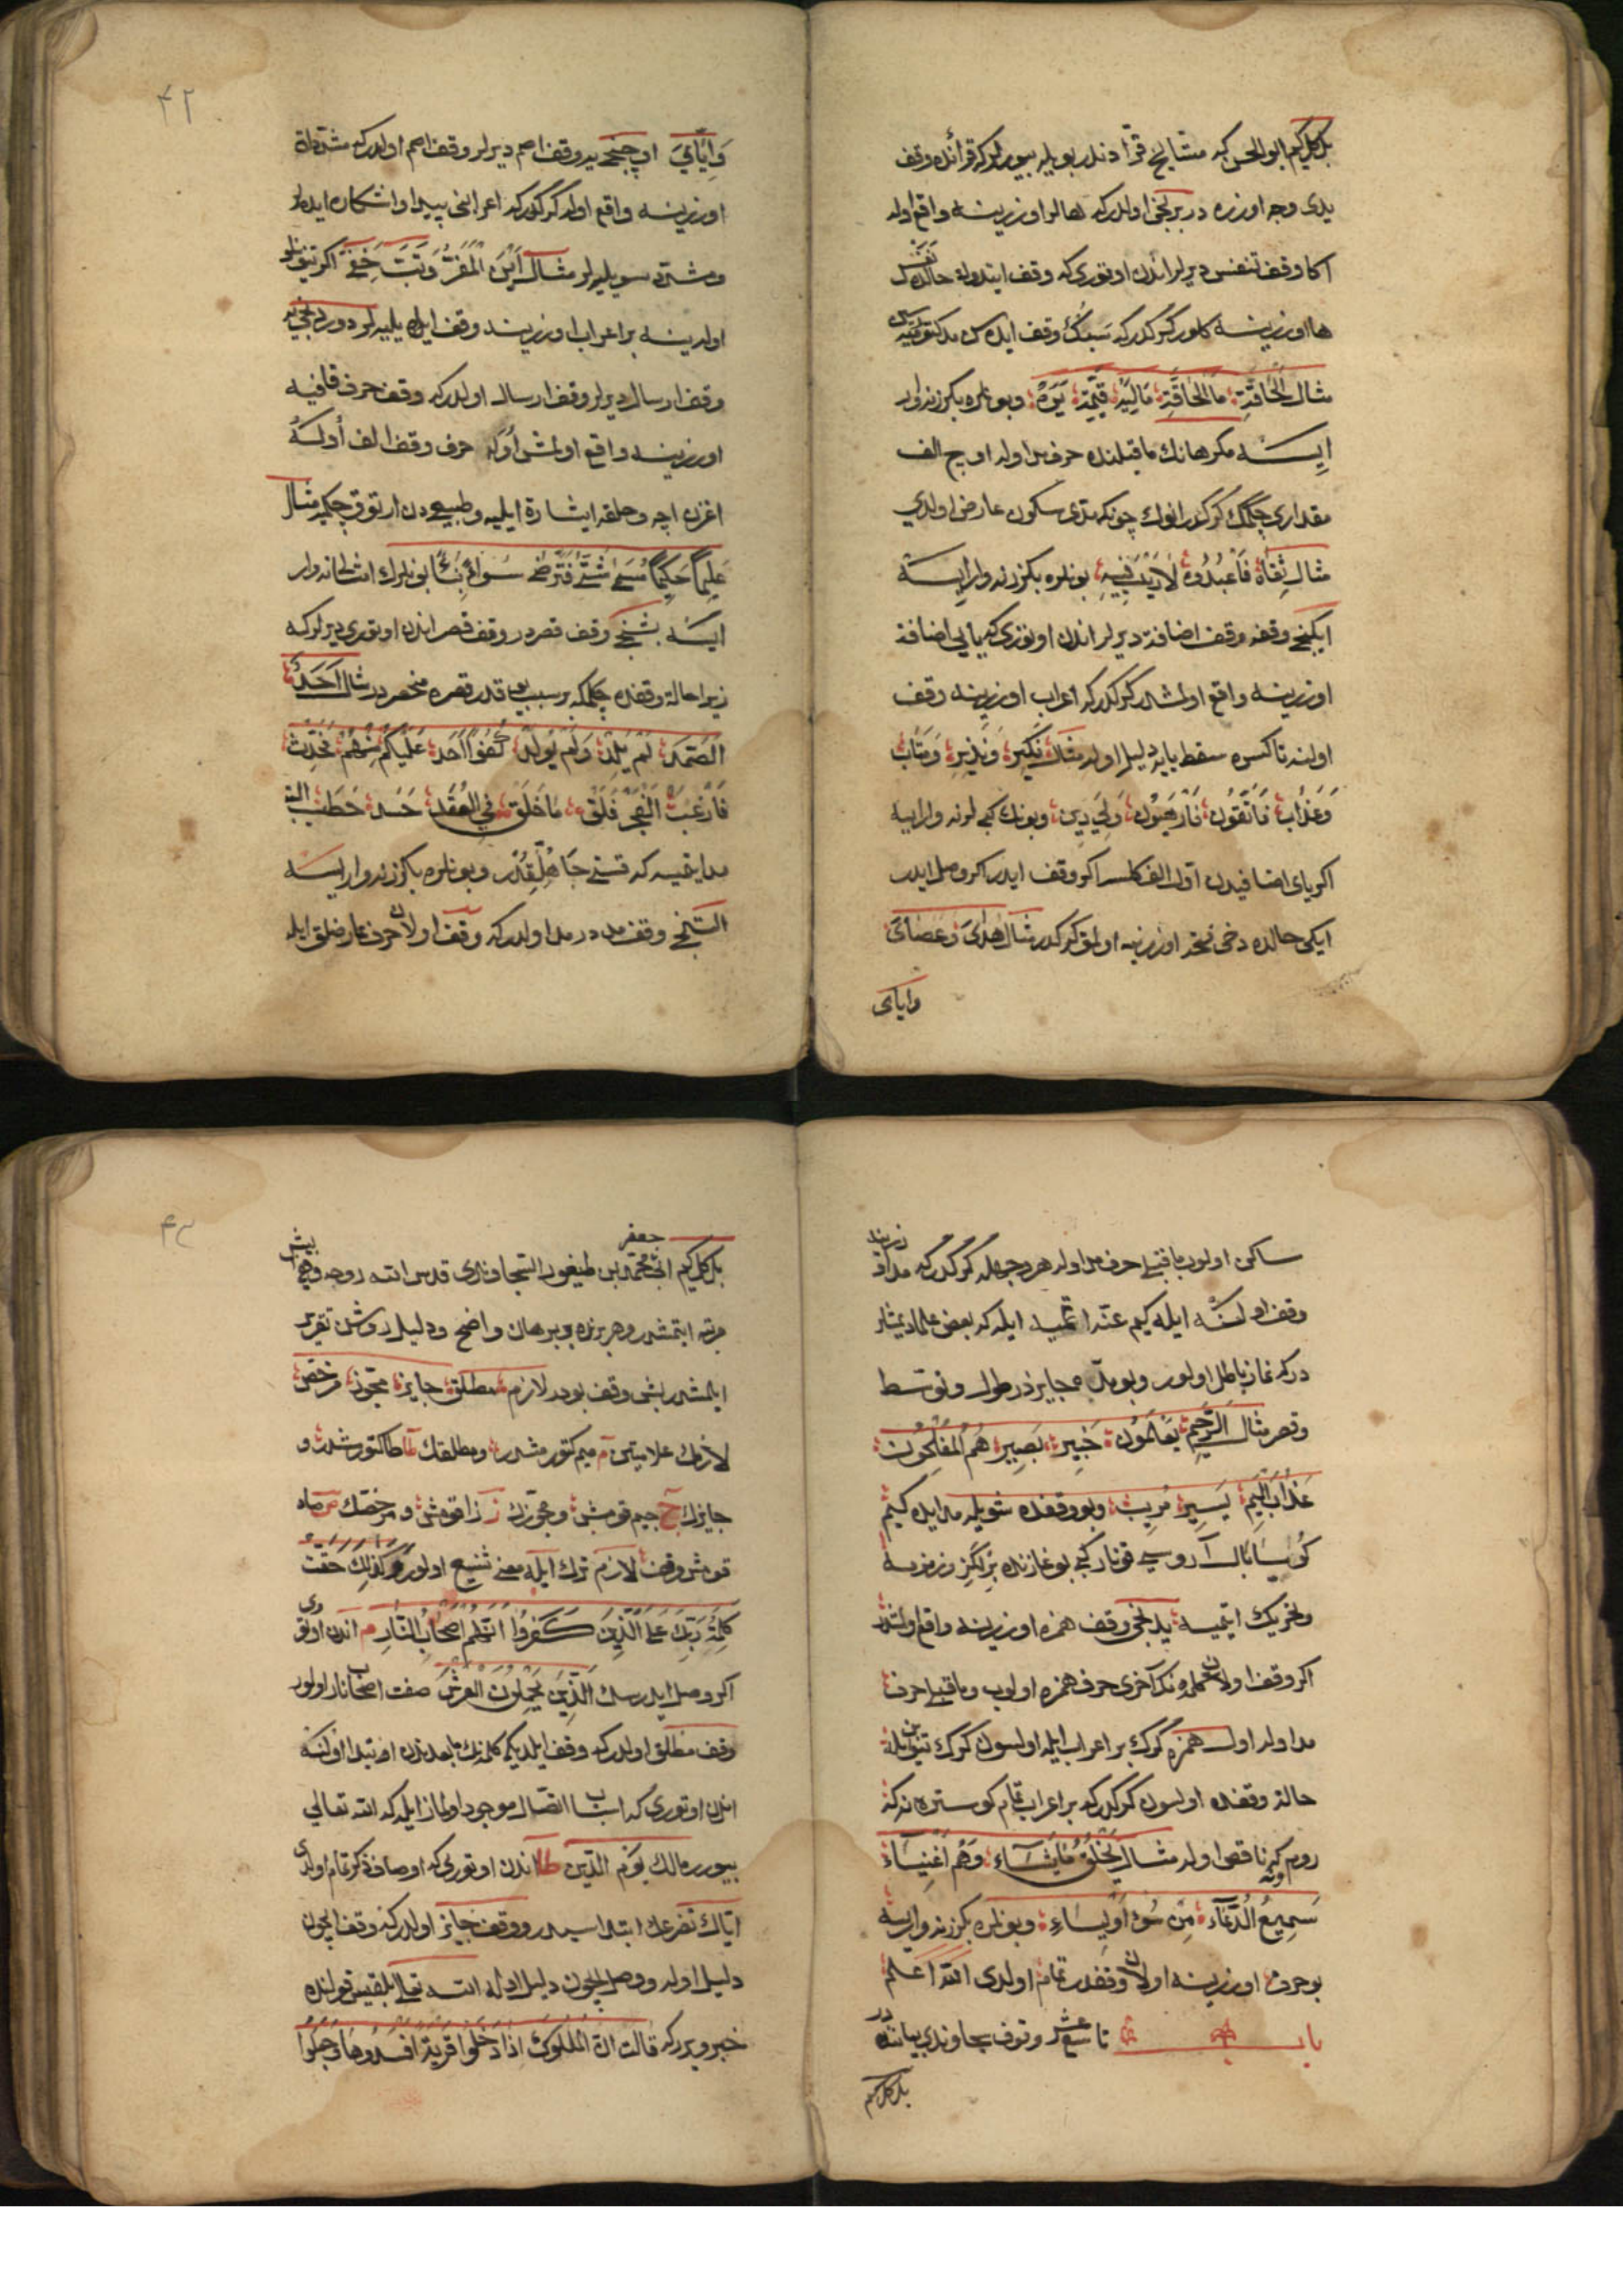 بل كل كیم ابو الحسن كه مشایخ قرّا دندر بویله بیوررلركه قرائنده وقف
یدی وجه اوزره در برنجی اولدركه هالر اوزرینه واقع اوله
اكا وقف تنفس دیرلر اندن اوتوری كه وقف ایتدوكه حالده نفس
ها اوزرینه كلور كركدركه سبك وقف ایده سن
مثال الحاقّة ما الحاقّة مالیه قیّمة یره وبونلره بكزر نه وار
ایسه مكر هانك ماقبلنده حرف مد اوله اوچ الف
مقداری چكمك كركدر انوك چونكه مدی سكون عارض اولدی
مثال تقاة فاعبدوه لاریب فیه بونلره بكزر نه وار ایسه
ایكنجی وقفه وقف اضافة دیرلر اندن اوتوری كه یای اضافة
اوزرینه واقع اولمشدر كركدركه اعراب اوزرینه وقف
اولنه تا كسره سقط یایه دلیل اوله مثال نكیر ونذیر ومتاب
وعذاب فاتقون فارهبون ولی دین وبونك كبی لر نه وار ایسه
اكر یای اضافیدن اوّل الف كلسه اكر وقف ایدر اكر وصل ایدر
ایكی حالده دخی فتحه اوزرینه اولمق كركدر مثال هدای وعصای
وایای
٤٢
وایّای اوچنجی یه وقف اصم دیرلر وقف اصم اولدركه مشدّدلر
اوزرینه واقع اوله كركدركه اعرابنی پیدا و اشكاره ایده لر
ومشدّد سویلیه لر مثال این المفرّ وتبّ خفیّ اكر تنوینلو
اولدیسه بر اعراب اوزرینه وقف ایله یلیه لر دوردنجی یه
وقف ارسال دیرلر وقف ارسال اولدركه وقف حرف قافیه
اوزرینه واقع اولمش اوله حرف وقف الف اولسه
اغزن اچه وحلقه ایشارة ایلیه وطبیعیدن ارتوق چكمیه مثال
علیما حكیما مسمّی شتّی فترضی سوائ بنائ بونلرك امثالی نه وار
ایسه بشنجی وقف قصردر وقف قصر اندن اوتوری دیرلركه
زیرا حالة وقفده چكمكه بر سبب یوقدر قصره منحصردر مثال احد
الصّمد لم یلد ولم یولد كفوًا احد علیكم منهم فحدّث
فارغب الفجر فلق ما خلق فی العقد حسد حطب البتّه
مد ایتمیه كه قسنی جاهللقدر وبونلره بكزر نه وار ایسه
التنجی وقف مد در مد اولدركه وقف اولان حرف عارضلق ایله
ساكن اولوب ماقبلی حرف مد اوله هر وجهله كركدركه مد اوزرینه
وقف اولنه ایله كیم غنّه ایتمیه ایله كه بعض علما دیمشلر
دركه نماز باطل اولور وبو مدّ ه جایزدر طول وتوسّط
وقصر مثال الرّحیم یعلمون خبیر بصیر هم المفلحون
عذاب الیم یسیر مریب وبو وقفده شویله مد ایده كیم
كویا بال آروسی قونار كبی بوغازنده بزلكز رنزریه
وتحریك ایتمیه یدنجی وقف همزه اوزرینه واقع اولمشدر
اكر وقف اولان كلمه نك آخری حرف همزه اولوب وماقبلی حرف
مد اوله اول همزه كرك بر اعراب ایله اولسون كرك تنوین ایله
حالة وقفده اولسون كركدركه بر اعراب تمام كوستره نه كه
روم كه ناقص اوله مثال یخلق ما یشاء وهم اغنیاء
سمیع الدّعاء من سوء اولیاء وبونلره بكزر نه وار ایسه
بو حرف اوزرینه اولان وقفدر تمام اولدی الله اعلم
باب تاسع عشر وقوف سجاوندی بیاننده در
بل كل كیم
٤٣
بل كل كیم ابی جعفر محمّد بن طیفور السّجاوندی قدس الله روحه وقفی بش
مرتبه ایتمشدر وهر برنره بر برهان واضح ودلیل روشن تقریر
ایلمشدر بش وقف بودر لازم مطلق جایز مجوّز مرخّص
لازمك علامتین م میم كتورمشدر ومطلقك ط طا كتورمشدر و
جایزك ج جیم قومش ومجوّزك ز زا قومش ومرخّصك ص صاد
قومش وقف لازم ترك ایله معنی شنیع اولور وكذلك حقّت
كلمة ربّك علی الّذین كفروا انّهم اصحاب النّار م اندن اوتوری
اكر وصل ایدرسك الّذین یحملون العرش صفت اصحاب نار اولور
وقف مطلق اولدركه وقف ایلدیكه كلمه نك مابعدندن ابتدا اولنه
اندن اوتوری كه اسباب اتّصال موجود اولماز ایله كه الله تعالی
بیوررر مالك یوم الدّین ط اندن اوتوری كه اوصاف ذكر تمام اولدی
ایّاك تضرعك ابتداسیدر ووقف جایز اولدركه وقف ایچون
دلیل اوله ووصل ایچون دلیل اوله الله تعالی بلقیس قولنده
خبر ویرركه قالت انّ الملوك اذا دخلوا قریة افسدوها وجعلوا